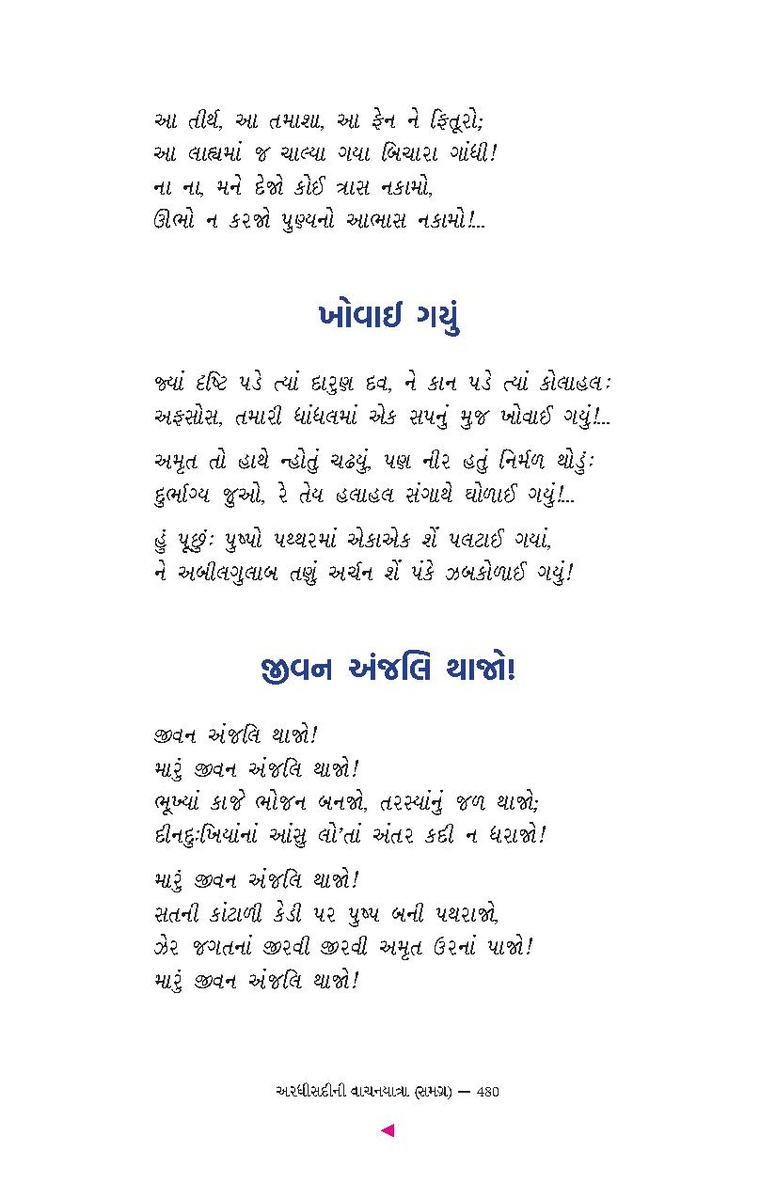 આ તીર્થ, આ તમાશા, આ ફેન ને ફિતૂરો;
આ લાહ્યમાં જ ચાલ્યા ગયા બિચારા ગાંધી!
ના ના, મને દેજો કોઈ ત્રાસ નકામો,
ઊભો ન કરજો પુણ્યનો આભાસ નકામો!...
ખોવાઈ ગયું
જ્યાં દૃષ્ટિ પડે ત્યાં દારુણ દવ, ને કાન પડે ત્યાં કોલાહલઃ
અફસોસ, તમારી ધાંધલમાં એક સપનું મુજ ખોવાઈ ગયું!...
અમૃત તો હાથે ન્હોતું ચઢયું, પણ નીર હતું નિર્મળ થોડુંઃ
દુર્ભાગ્ય જુઓ, રે તેય હલાહલ સંગાથે ઘોળાઈ ગયું!...
હું પૂછુંઃ પુષ્પો પથ્થરમાં એકાએક શેં પલટાઈ ગયાં,
ને અબીલગુલાબ તણું અર્ચન શેં પંકે ઝબકોળાઈ ગયું!
જીવન અંજલિ થાજો!
જીવન અંજલિ થાજો!
મારું જીવન અંજલિ થાજો!
ભૂખ્યાં કાજે ભોજન બનજો, તરસ્યાંનું જળ થાજો;
દીનદુઃખિયાંનાં આંસુ લો'તાં અંતર કદી ન ધરાજો!
મારું જીવન અંજલિ થાજો!
સતની કાંટાળી કેડી પર પુષ્પ બની પથરાજો,
ઝેર જગતનાં જીરવી જીરવી અમૃત ઉરનાં પાજો!
મારું જીવન અંજલિ થાજો!
અરધીસદીની વાચનયાત્રા (સમગ્ર) — 480